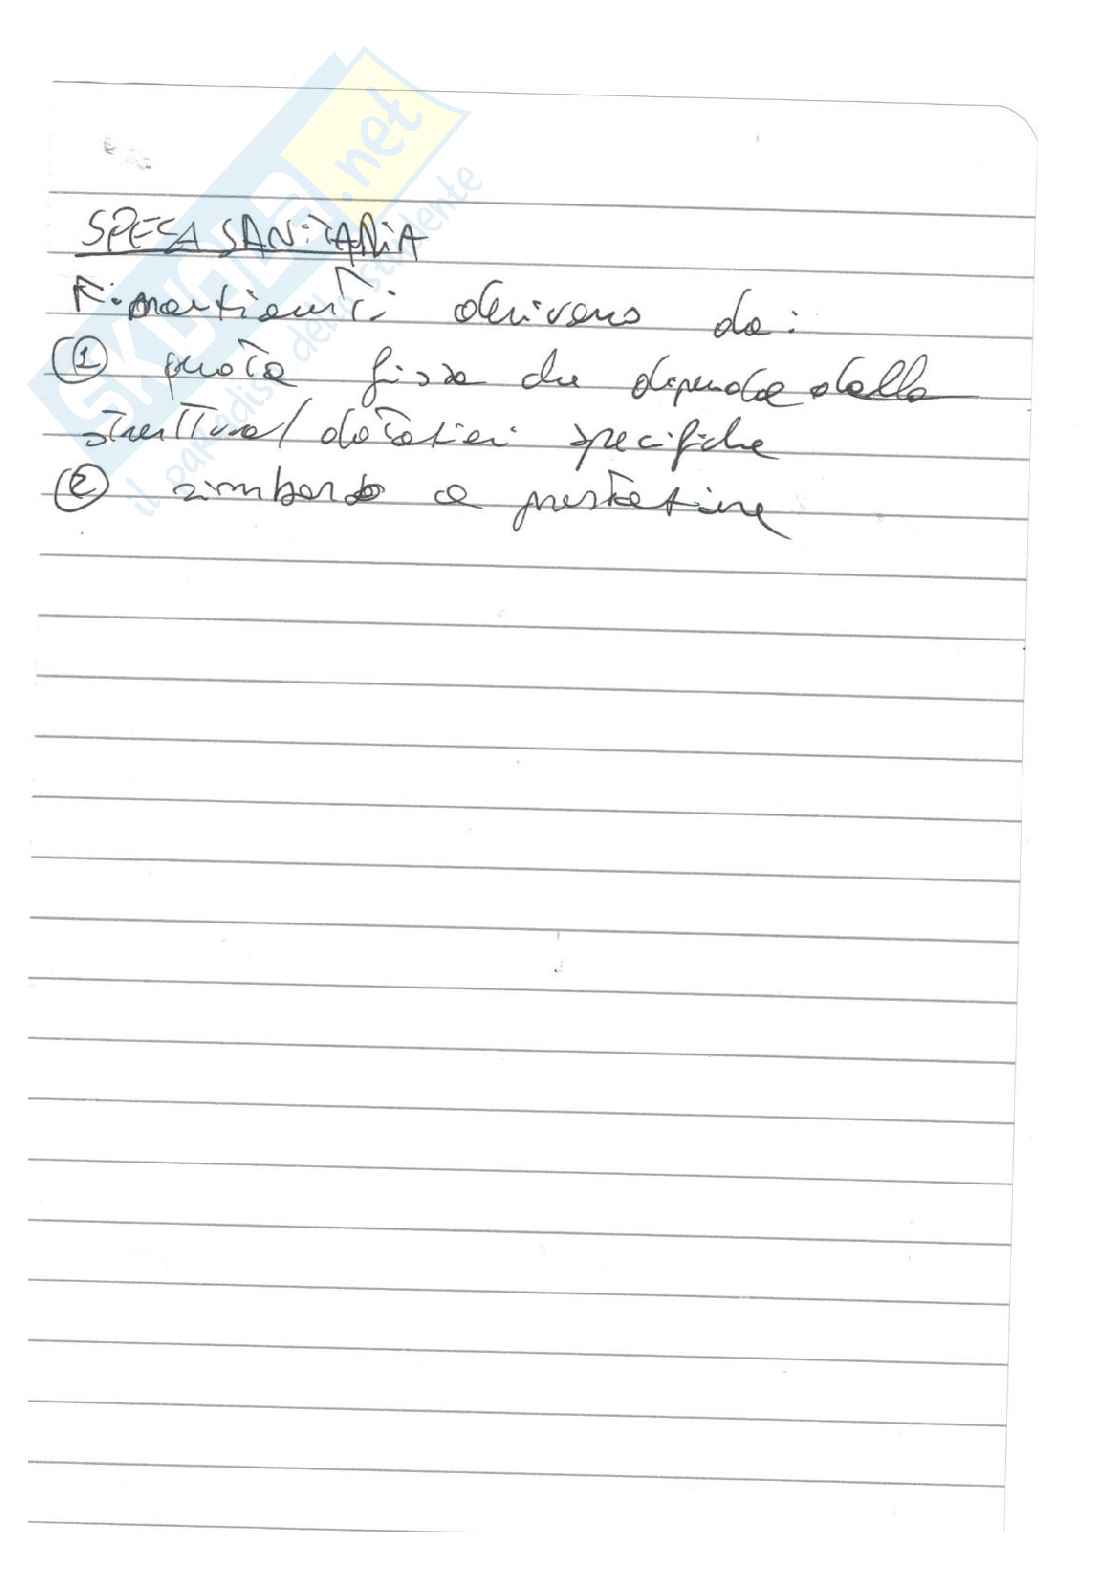 SPESA SANITARIA
Finanziamenti derivano da:
① quota fissa che dipende dalla
struttura/dotazioni specifiche
② rimborso a prestazione
SKUOLA.net
il paradiso dello studente